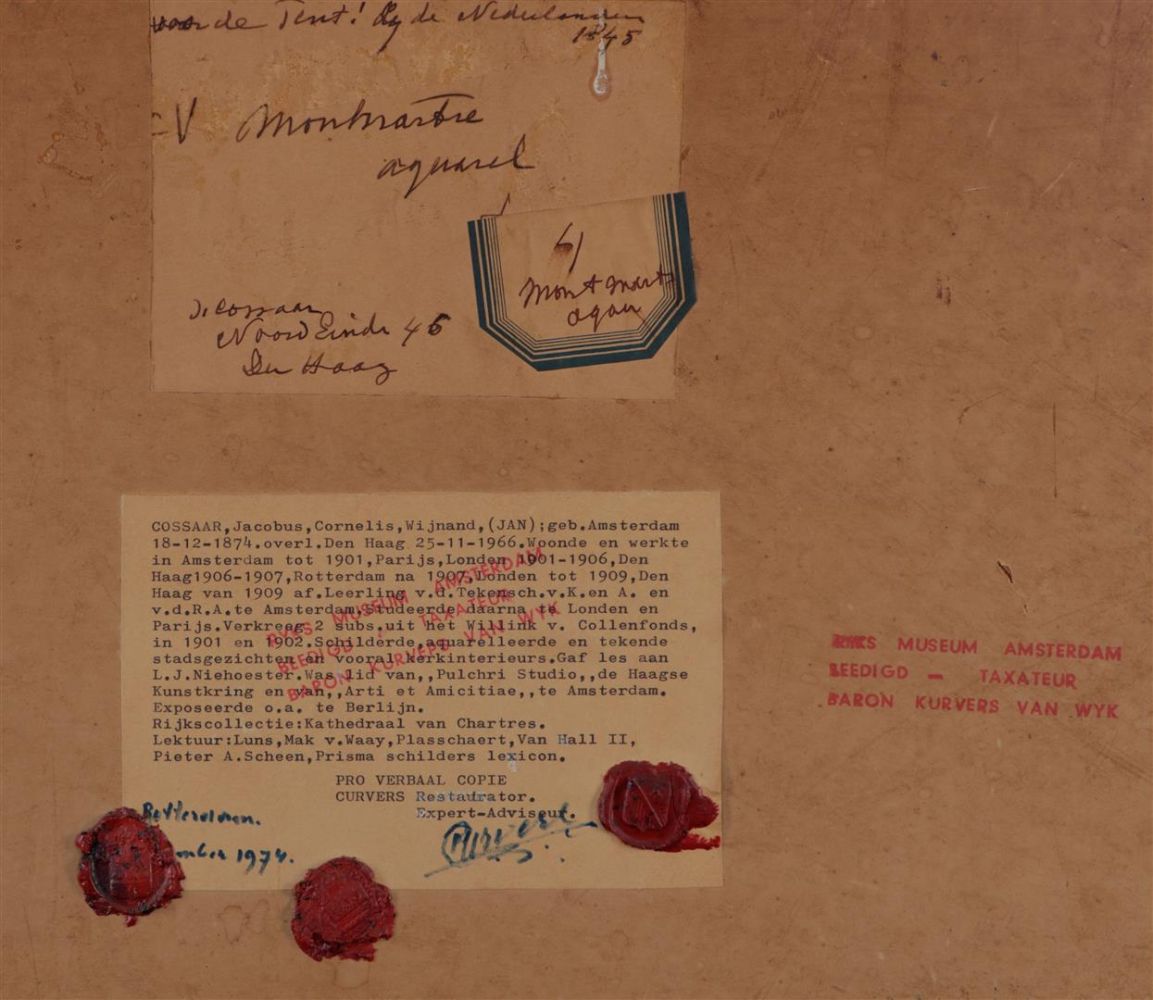 de Tent! By de Nederlanden
1845
V Montmartre
aquarel
61
Montmartr
aqua
J. Cossaar
Noord Einde 46
Den Haag
COSSAAR,Jacobus,Cornelis,Wijnand,(JAN);geb.Amsterdam
18-12-1874.overl.Den Haag 25-11-1966.Woonde en werkte
in Amsterdam tot 1901,Parijs,Londen 1901-1906,Den
Haag1906-1907,Rotterdam na 1907,Londen tot 1909,Den
Haag van 1909 af.Leerling v.d.Tekensch.v.K.en A. en
v.d.R.A.te Amsterdam,Studeerde daarna te Londen en
Parijs.Verkreeg 2 subs.uit het Willink v. Collenfonds,
in 1901 en 1902.Schilderde,aquarelleerde en tekende
stadsgezichten en vooral kerkinterieurs.Gaf les aan
L.J.Niehoester.Was lid van,,Pulchri Studio,,de Haagse
Kunstkring en van,,Arti et Amicitiae,,te Amsterdam.
Exposeerde o.a. te Berlijn.
Rijkscollectie:Kathedraal van Chartres.
Lektuur:Luns,Mak v.Waay,Plasschaert,Van Hall II,
Pieter A.Scheen,Prisma schilders lexicon.
PRO VERBAAL COPIE
CURVERS Restaurator.
Expert-Adviseur.
RYKS MUSEUM AMSTERDAM
BEEDIGD - TAXATEUR
BARON KURVERS VAN WYK
Rotterdam.
mber 1974.
Curvers
RYKS MUSEUM AMSTERDAM
BEEDIGD — TAXATEUR
BARON KURVERS VAN WYK